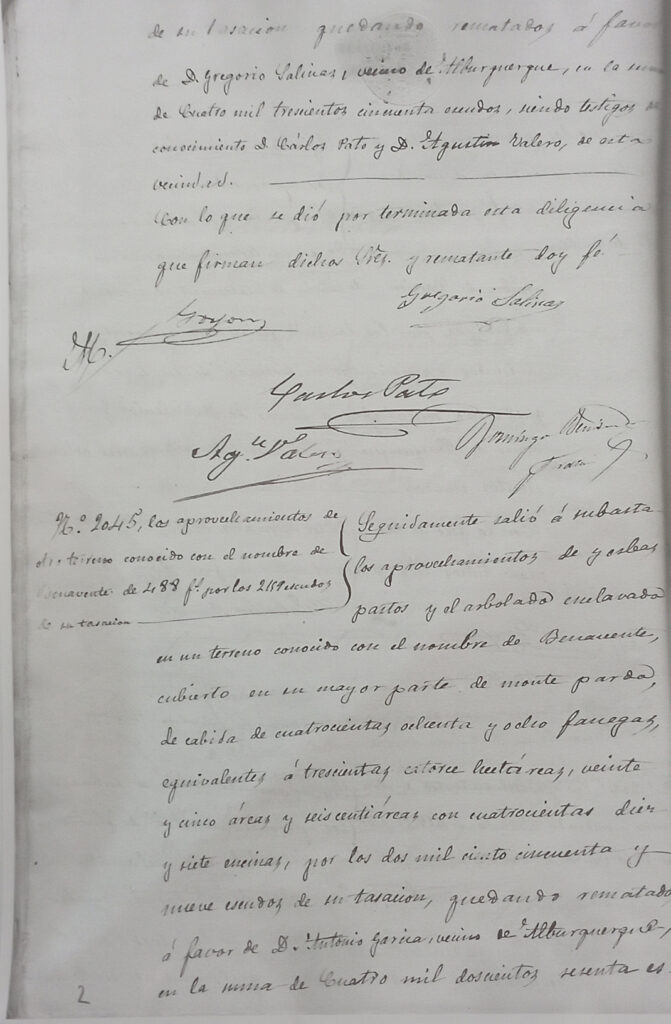 de su tasacion quedando rematados á favor
de D. Gregorio Salinas, vecino de Alburquerque, en la
de Cuatro mil trescientos cincuenta escudos, siendo testigos
conocimiento D. Cárlos Pato y D. Agustin Valero, de esta
vecindad.
Con lo que se dió por terminada esta diligencia
que firman dichos Sres. y rematante doy fé.
Gregorio Salinas
M.
Carlos Pato
Agn. Valero
Domingo
N.º 2045, los aprovechamientos de
terreno conocido con el nombre de
Benavente de 488 fs. por los 2159 escudos
de su tasacion
Seguidamente salió á subasta
los aprovechamientos de yerbas
pastos y el arbolado enclavado
en un terreno conocido con el nombre de Benavente,
cubierto en su mayor parte de monte pardo,
de cabida de cuatrocientas ochenta y ocho fanegas,
equivalentes á trescientas catorce hectáreas, veinte
y cinco áreas y seis centiáreas con cuatrocientas diez
y siete encinas, por los dos mil ciento cincuenta y
nueve escudos de su tasacion, quedando rematado
á favor de D. Antonio Garcia, vecino de Alburquerque,
en la suma de Cuatro mil doscientos sesenta es
2